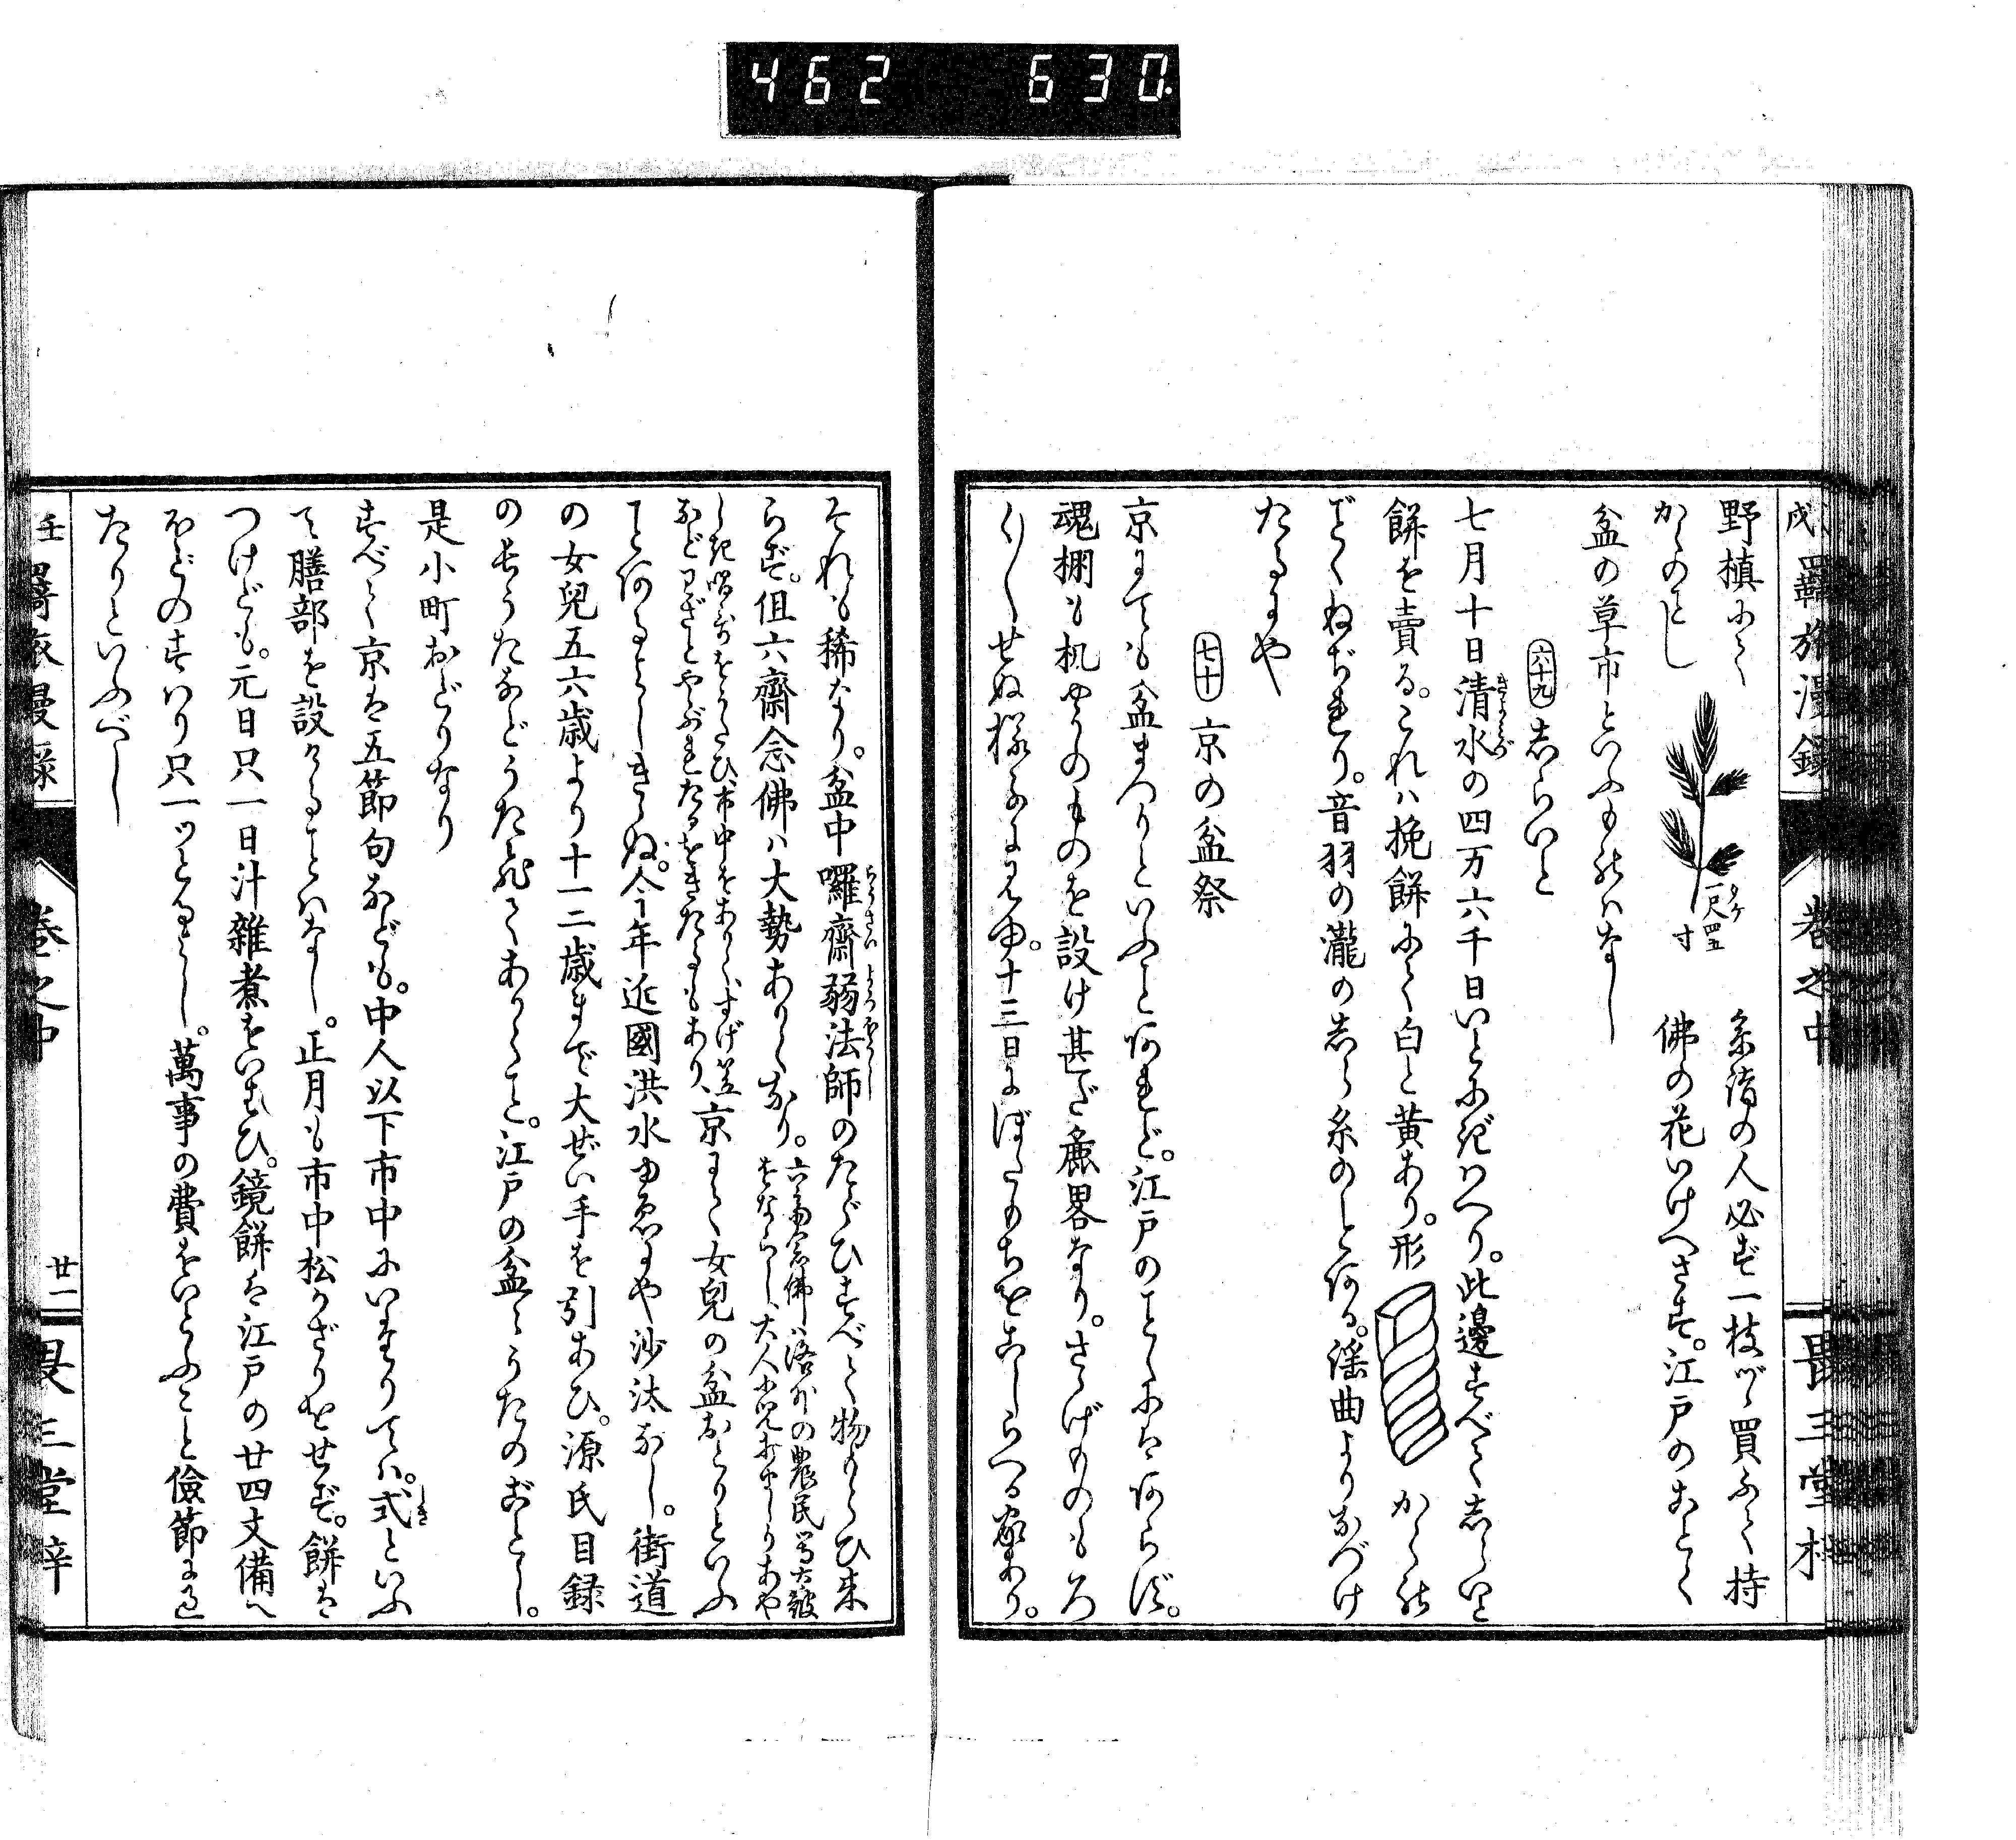 462 630
羇旅漫録
巻之中
畏三堂
野槙にて
かくのごとし
タケ
一尺四五
寸
参詣の人必ず一枝ヅヽ買ふて持
佛の花いけへさす。江戸のおとく
盆の草市といふものはなし
六十九 しらいと
七月十日清水の四万六千日いとにぎはへり。此邊すべてしらいと
餅を賣る。これハ挽餅にて白と黄あり。形 かくの
ごとくねぢれり。音羽の瀧のしら糸のこゝろ。謡曲よりなづけ
たるにや
七十 京の盆祭
京にても盆まつりといふことあれど。江戸のごとくにはあらず。
魂棚も机やうのものを設け甚だ麁畧なり。さゝげものもろ
くせぬ様に見ゆ。十三日にぼたもちをこしらへる家あり。
それも稀なり。盆中囉齋弱法師のたぐひすべて物もらひ来
らず。但六齋念佛ハ大勢ありくなり。
六齋念佛ハ洛外の農民等大皷
をならし、大人小児打まじりあや
しき唱哥をうたひ、市中をありく、すげ笠
などわざとやぶれたるをきたるもあり、
京にて女児の盆おどりといふ
ことあるよしきゝぬ。今年近國洪水ゆゑにや沙汰なし。街道
の女兒五六歳より十一二歳まで大ぜい手を引あひ。源氏目録
の長うたなどうたひてありくこと。江戸の盆々うたのごとし。
是小町おどりなり
すべて京は五節句なども。中人以下市中にいたりては。式といふ
て膳部を設くることはなし。正月も市中松かざりをせず。餅は
つけども。元日只一日汁雑煮をいはひ。鏡餅は江戸の廿四文備へ
ほどのをすはり只一ツとるよし。萬事の費をいとふこと儉節に過
たりといふべし
羇旅漫録
巻之中
廿一
畏三堂梓